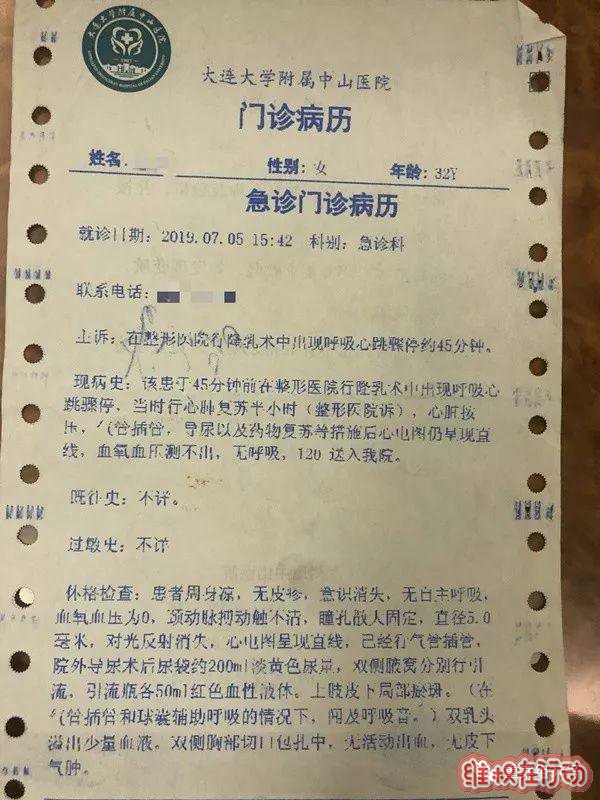 大连大学附属中山医院
大连大学附属中山医院
门诊病历
姓名: 性别: 女 年龄: 32Y
急诊门诊病历
就诊日期: 2019.07.05 15:42 科别: 急诊科
联系电话:
主诉: 在整形医院行隆乳术中出现呼吸心跳骤停约45分钟。
现病史: 该患于45分钟前在整形医院行隆乳术中出现呼吸心
跳骤停, 当时行心肺复苏半小时(整形医院诉), 心脏按
压, 气管插管, 导尿以及药物复苏等措施后心电图仍呈现直
线, 血氧血压测不出, 无呼吸, 120 送入我院。
既往史: 不详。
过敏史: 不详
体格检查: 患者周身凉, 无皮疹, 意识消失, 无自主呼吸,
血氧血压为0, 颈动脉搏动触不清, 瞳孔散大固定, 直径5.0
毫米, 对光反射消失, 心电图呈现直线, 已经行气管插管,
院外导尿术后尿袋约200ml淡黄色尿量, 双侧腋窝分别行引
流, 引流瓶各50ml红色血性液体。上肢皮下局部瘀斑。(在
气管插管和球囊辅助呼吸的情况下, 闻及呼吸音。)双乳头
溢出少量血液。双侧胸部切口包扎中, 无活动出血, 无皮下
气肿。
维权在行动